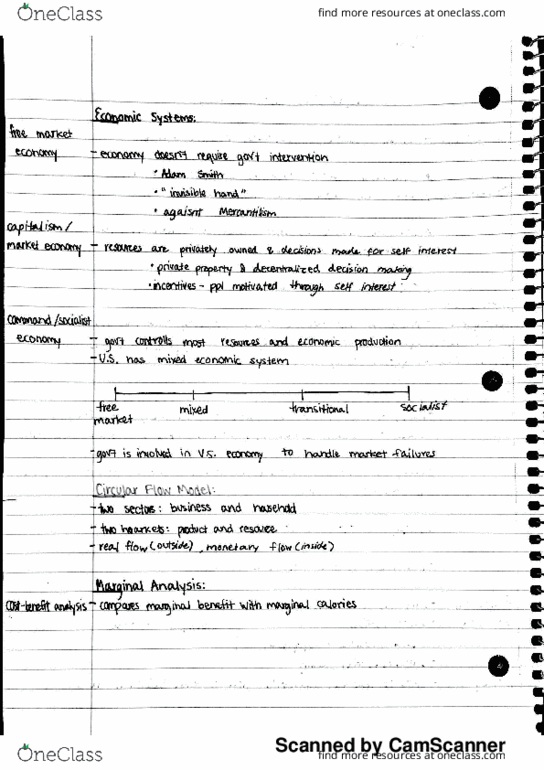 OneClass
find more resources at oneclass.com
Economic Systems:
free market
economy - economy doesn't require gov't intervention
• Adam Smith
• "invisible hand"
• agaisnt Mercantilism
capitalism/
market economy - resources are privately owned & decisions made for self interest
• private property & decentralized decision making
• incentives - ppl motivated through self interest
command/socialist
economy - gov't controlls most resources and economic production
- U.S. has mixed economic system
free market mixed transitional socialist
- gov't is involved in U.S. economy to handle market failures
Circular Flow Model:
- two sectors: business and household
- two markets: product and resource
- real flow (outside), monetary flow (inside)
Marginal Analysis:
cost-benefit analysis - compares marginal benefit with marginal calories
Scanned by CamScanner
OneClass
find more resources at oneclass.com